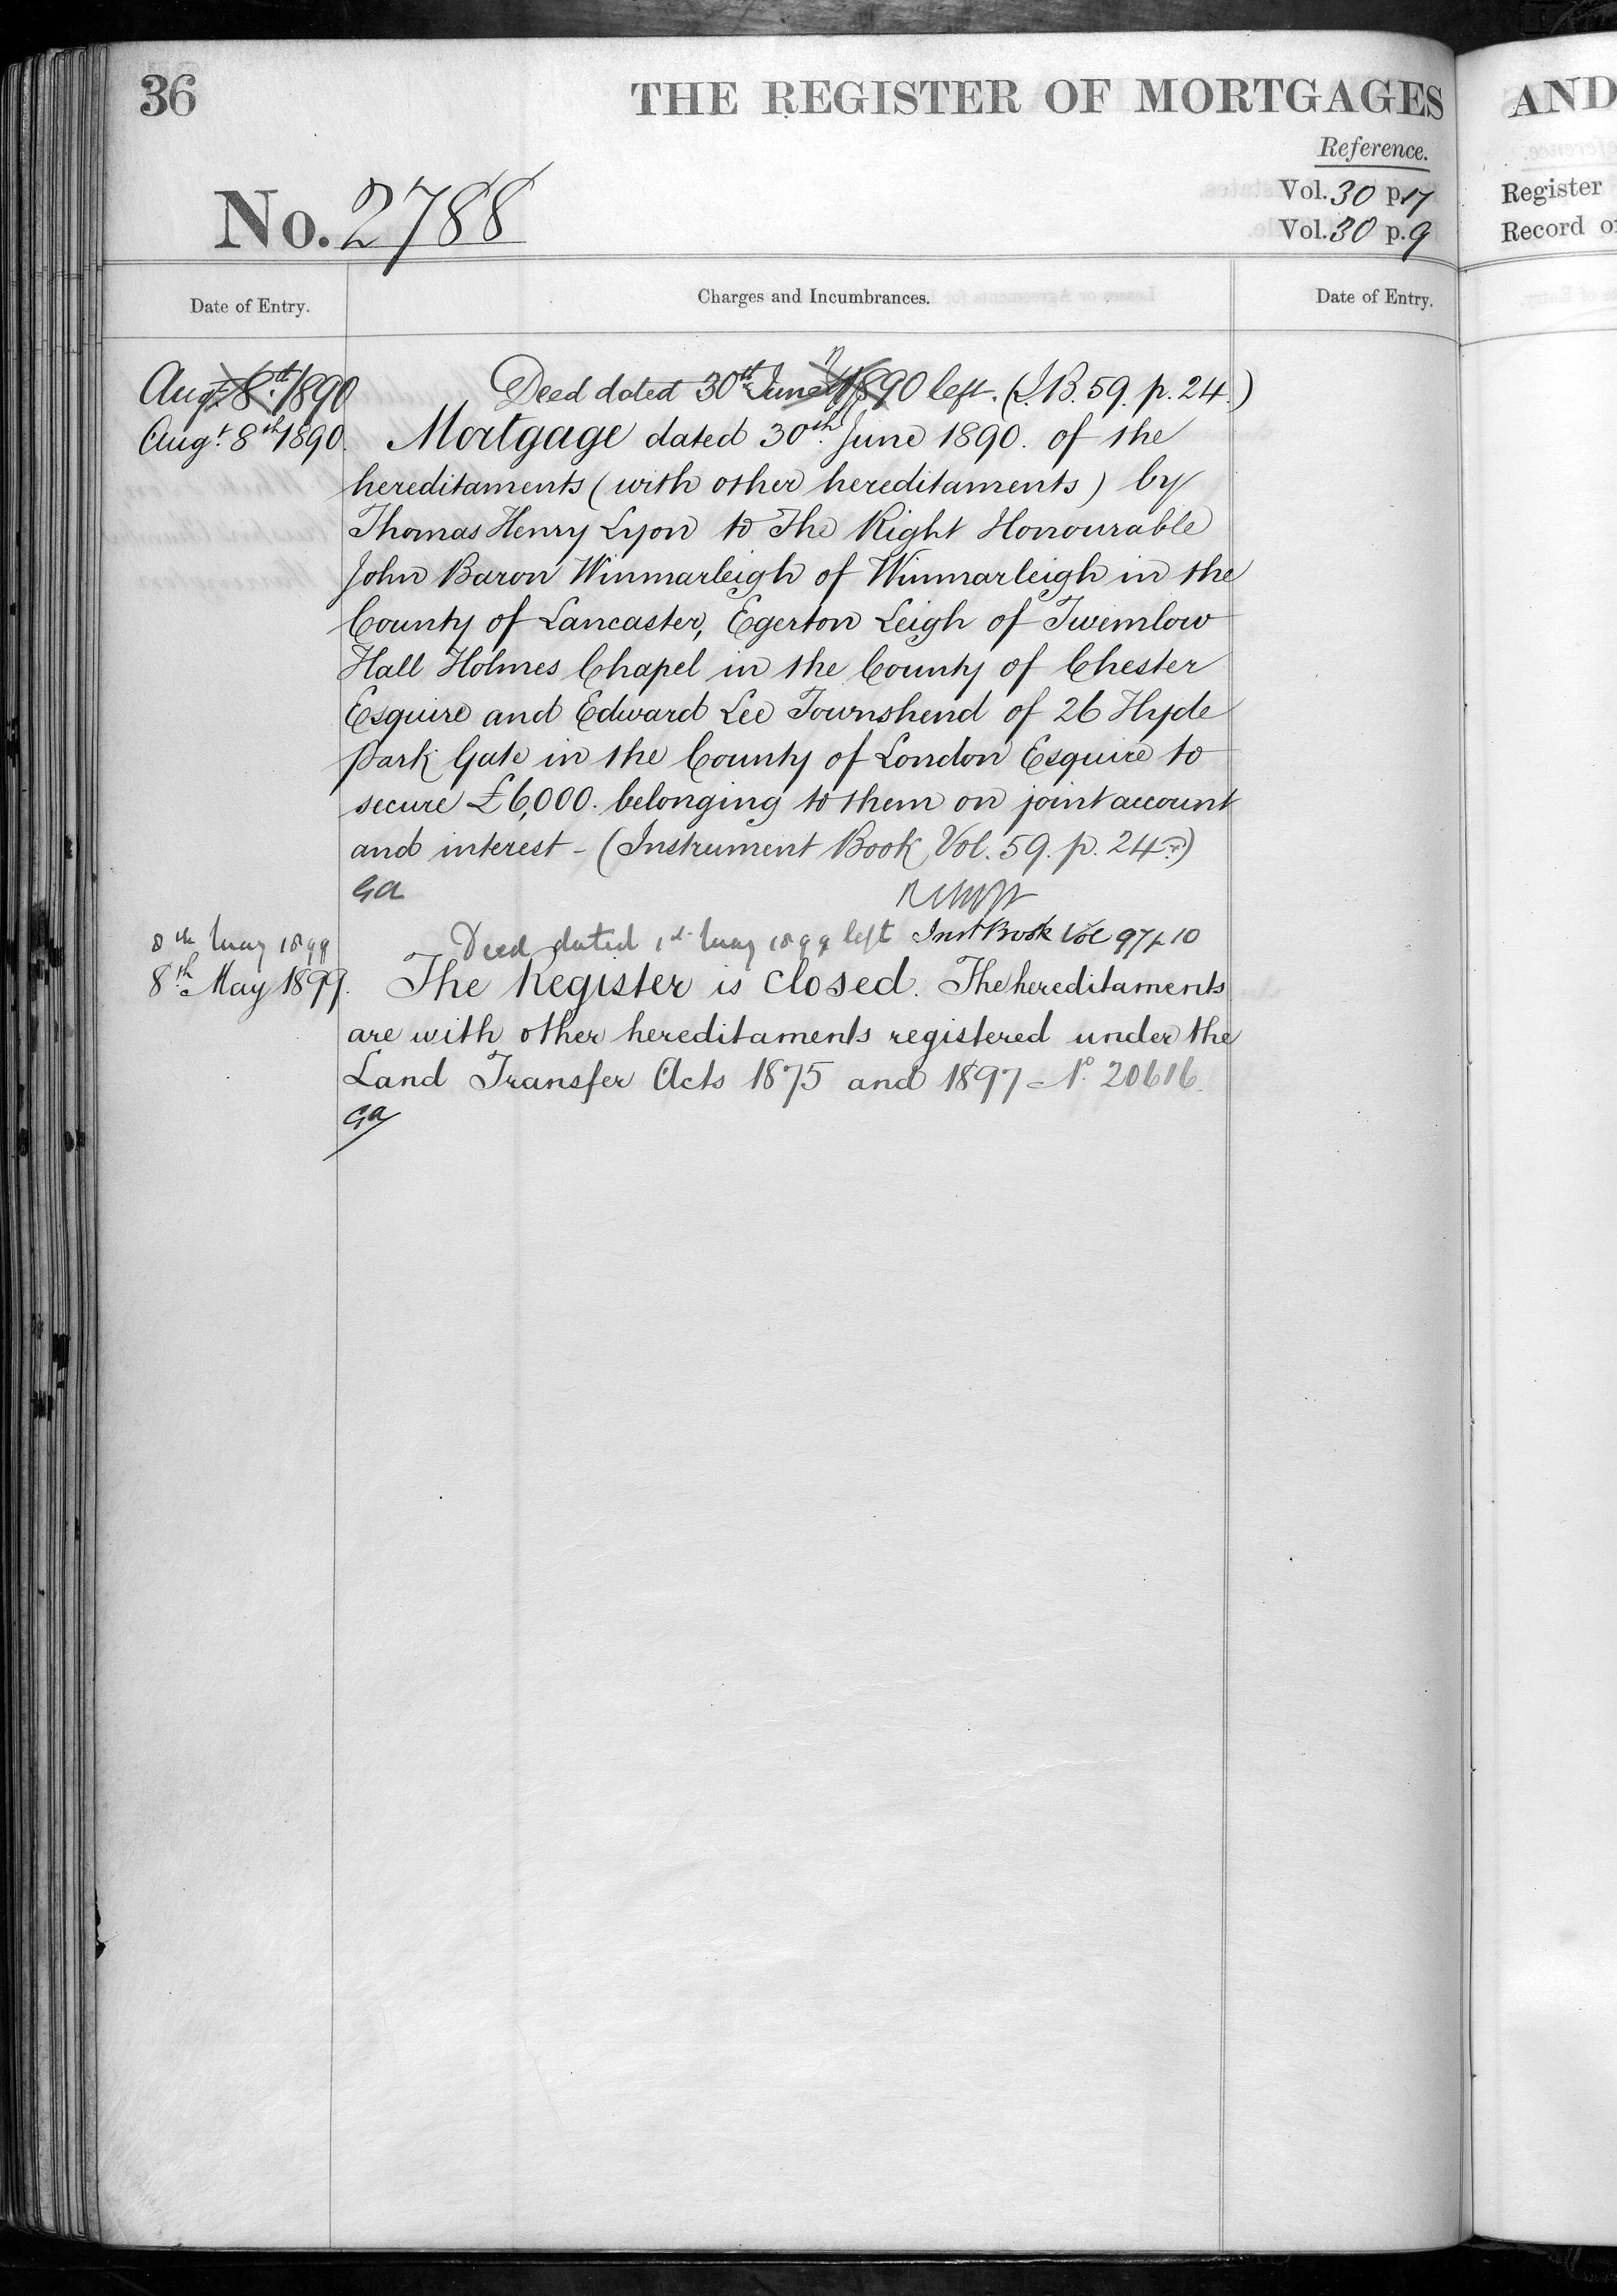 36
THE REGISTER OF MORTGAGES
AND
Reference.
No. 2788
Vol. 30 p. 17
Vol. 30 p. 9
Register
Record
Date of Entry.
Charges and Incumbrances.
Date of Entry.
Augt. 8th 1890 Deed dated 30th June 1890 left. (I.B. 59. p. 24.)
Augt. 8th 1890. Mortgage dated 30th June 1890. of the
hereditaments (with other hereditaments) by
Thomas Henry Lyon to The Right Honourable
John Baron Winmarleigh of Winmarleigh in the
County of Lancaster, Egerton Leigh of Twemlow
Hall Holmes Chapel in the County of Chester
Esquire and Edward Lee Townshend of 26 Hyde
Park Gate in the County of London Esquire to
secure £6,000. belonging to them on joint account
and interest - (Instrument Book, Vol. 59. p. 24.)
GA
8th May 1899 Deed dated 1st May 1899 left Inst Book Vol 97 p 10
8th May 1899. The Register is closed. The hereditaments
are with other hereditaments registered under the
Land Transfer Acts 1875 and 1897 - No. 20616.
GA